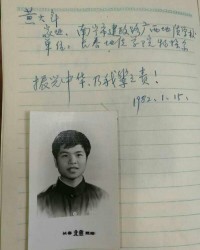 黄大年
家址: 南宁市建政路广西地质学校
单位: 长春地质学院物探系
振兴中华,乃我辈之责!
1982.1.15.
长春